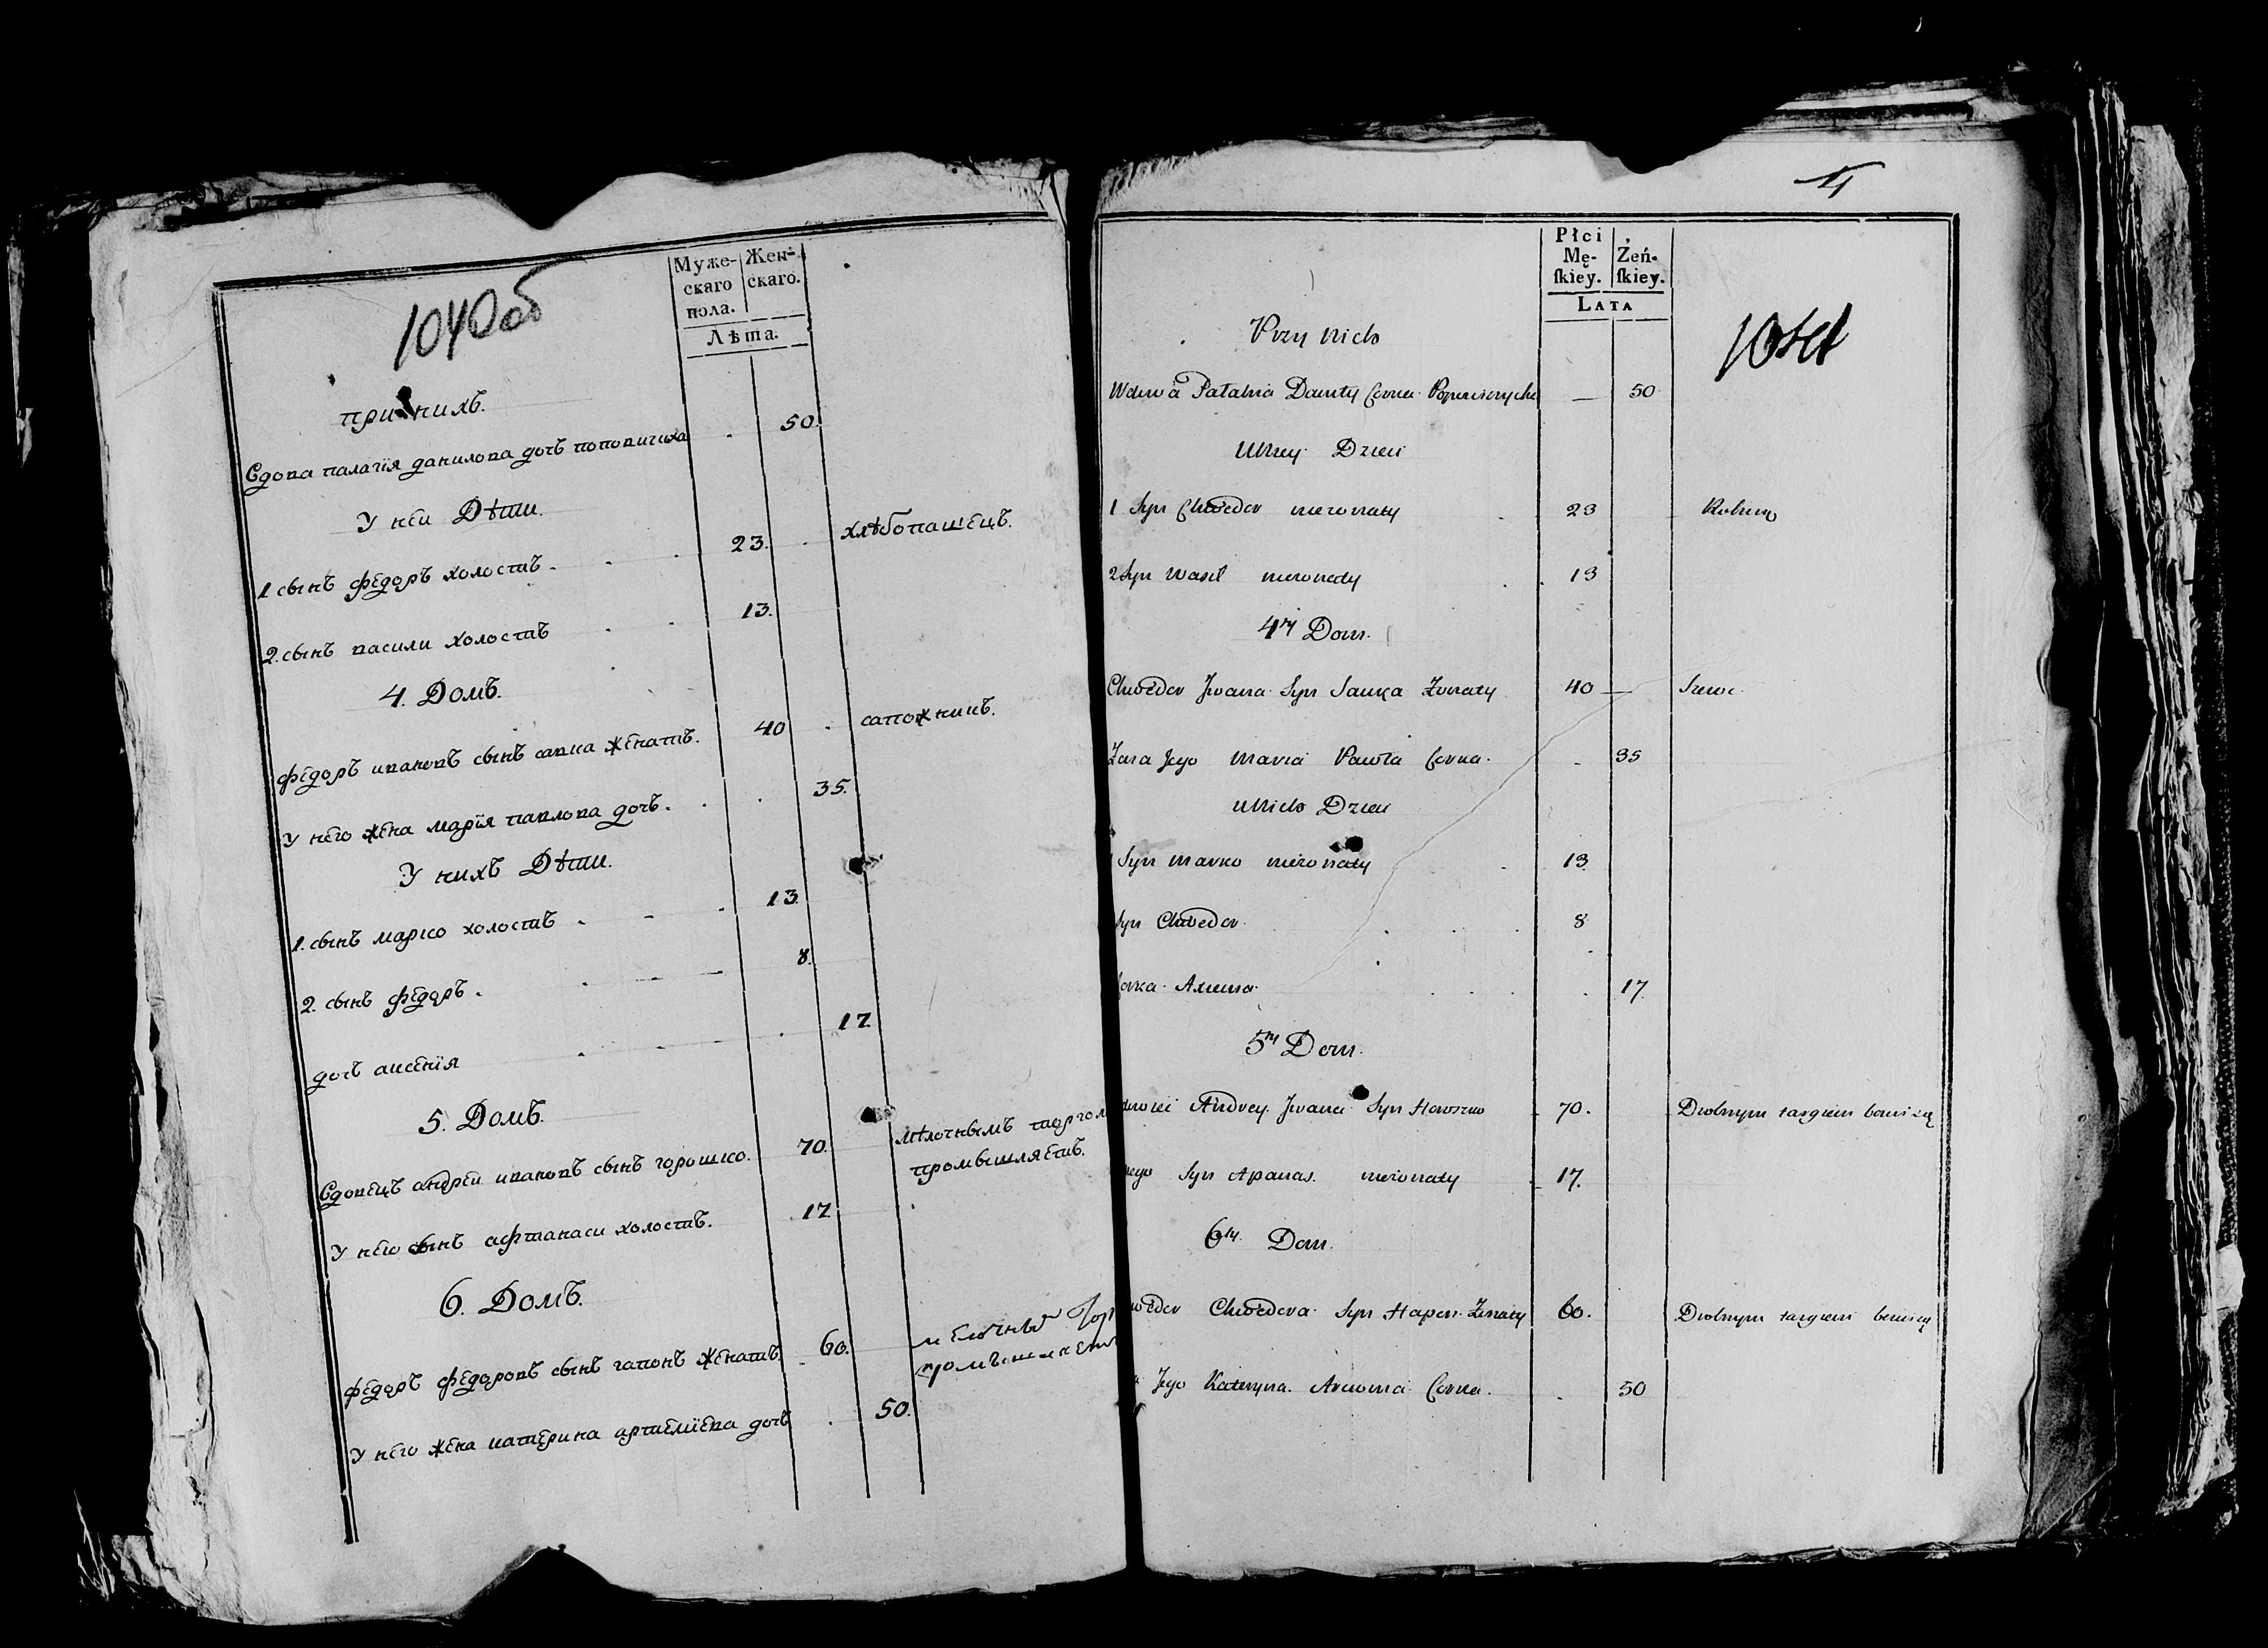 1040об
Муже-
скаго
пола.
Жен-
скаго.
Лѣта.
при нихъ.
Вдова палагїя данилова дочь поповичиха 50.
У неи Дѣти.
1 сынъ федоръ холостъ. 23. хлѣбопашецъ.
2. сынъ василии холостъ 13.
4. Домъ.
федоръ ивановъ сынъ савка женатъ. 40 сапожникъ.
У него жена марїя павлова дочь. 35.
У нихъ Дѣти.
1. сынъ марко холостъ 13.
2. сынъ федоръ. 8.
дочь аксенїя 17.
5. Домъ.
Вдовецъ андреи ивановъ сынъ горошко. 70. мѣлочнымъ торгом
промышляетъ.
У него сынъ афтанаси холостъ. 17.
6. Домъ.
федоръ федоровъ сынъ гапонъ женатъ. 60.
У него жена катерина артемїева дочь 50.
4
Płci
Mę-
skiey.
Żeń-
skiey.
LATA
Przy nich
Wdowa Danity Corka 50
Dzieci
1 Syn Chwedor nieżonaty 23
2 Syn Wasil nieżonaty 13
4ty Dom.
Chwedor Jwana Syn Sauka Żonaty 40 Szewc.
Żona Jego Maria Pawła Corka. 35
U Nich Dzieci
Syn Marko nieżonaty 13
Syn Chwedor. 8
Corka Axenia 17.
5ty Dom.
Andrey Jwana Syn Horoszko 70. Drobnym targiem bawi się
Syn Apanas. nieżonaty 17.
6ty Dom.
Chwedora Syn Hapon Żonaty 60. Drobnym targiem bawi się
Jego Kateryna Corka. 50